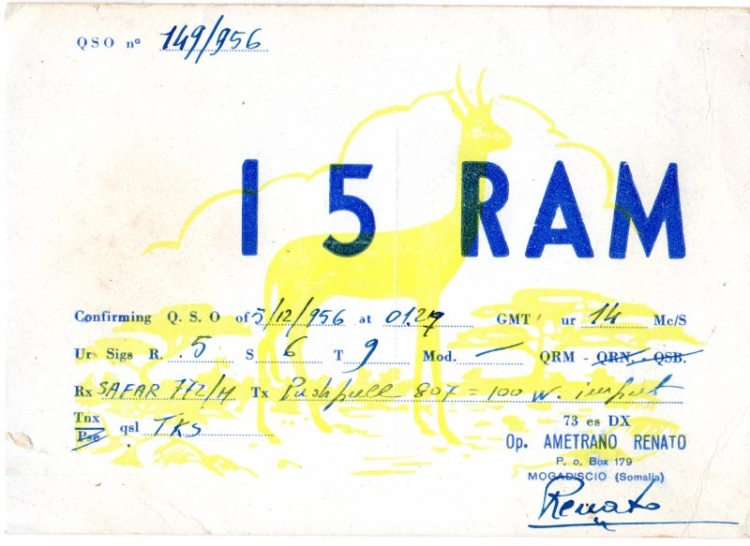 QSO nº 149/956
I 5 RAM
Confirming Q. S. O of 5/12/956 at 01.27 GMT ur 14 Mc/S
Ur Sigs R. 5 S 6 T 9 Mod. — QRM - QRN. - QSB.
Rx SAFAR 772/H Tx Push pull 807 = 100 W. input
Tnx
Pse qsl TKS
73 es DX
Op. AMETRANO RENATO
P. o. Box 179
MOGADISCIO (Somalia)
Renato